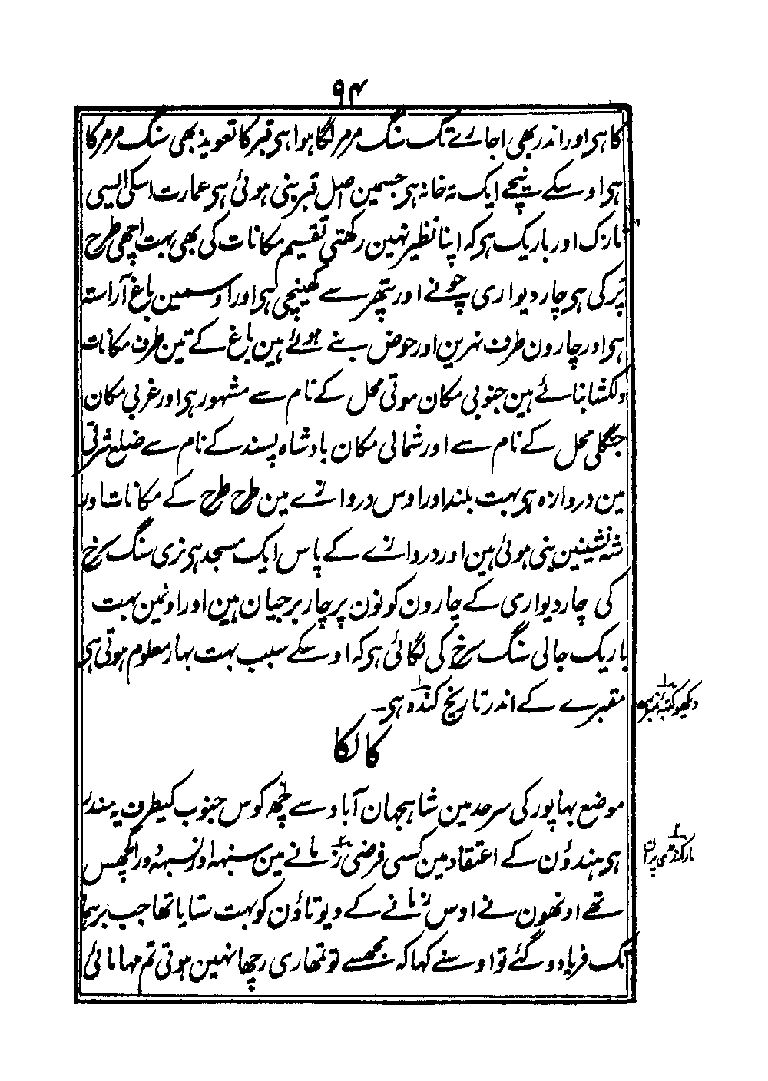 ۹۴
کا ہی اور اندر بھی اجارے تک سنگ مرمر لگا ہوا ہی قبر کا تعویذ بھی سنگ مرمر کا
ہی اوسکے نیچے ایک تہ خانہ ہی جسمین اصل قبر بنی ہوئی ہی عمارت اسکی ایسی
نازک اور باریک ہی کہ اپنا نظیر نہین رکھتی تقسیم مکانات کی بھی بہت اچھی طرح
پر کی ہی چار دیواری چونے اور پتھر سے کھینچی ہی اور اوسمین باغ آراستہ
ہی اور چارون طرف نہرین اور حوض بنے ہوئے ہین باغ کے تین طرف مکانات
دلکشا بنائے ہین جنوبی مکان موتی محل کے نام سے مشہور ہی اور غربی مکان
جنگلی محل کے نام سے اور شمالی مکان بادشاہ پسند کے نام سے ضلع شرقی
مین دروازہ ہی بہت بلند اور اوس دروازے مین طرح طرح کے مکانات اور
شہ نشینین بنی ہوئی ہین اور دروازے کے پاس ایک مسجد ہی نری سنگ سرخ
کی چار دیواری کے چارون کونون پر چار برجیان ہین اور اونمین بہت
باریک جالی سنگ سرخ کی لگائی ہی کہ اوسکے سبب بہت بہار معلوم ہوتی ہی
مقبرے کے اندر تاریخ کندہ ہی۔
دیکھو کتبہ نمبر
کالکا
موضع بہاپور کی سرحد مین شاہجہان آباد سے چھ کوس جنوب کیطرف یہ مندر
ہی ہندؤن کے اعتقاد مین کسی فرضی زمانے مین سنبہہ اور نسبہہ دو راکھس
تھے اونھون نے اوس زمانے کے دیوتاؤن کو بہت ستایا تھا جب برہما
تک فریاد و گئے تو اوسنے کہا کہ مجھسے تو تمھاری رچھا نہین ہوتی تم مہامائی